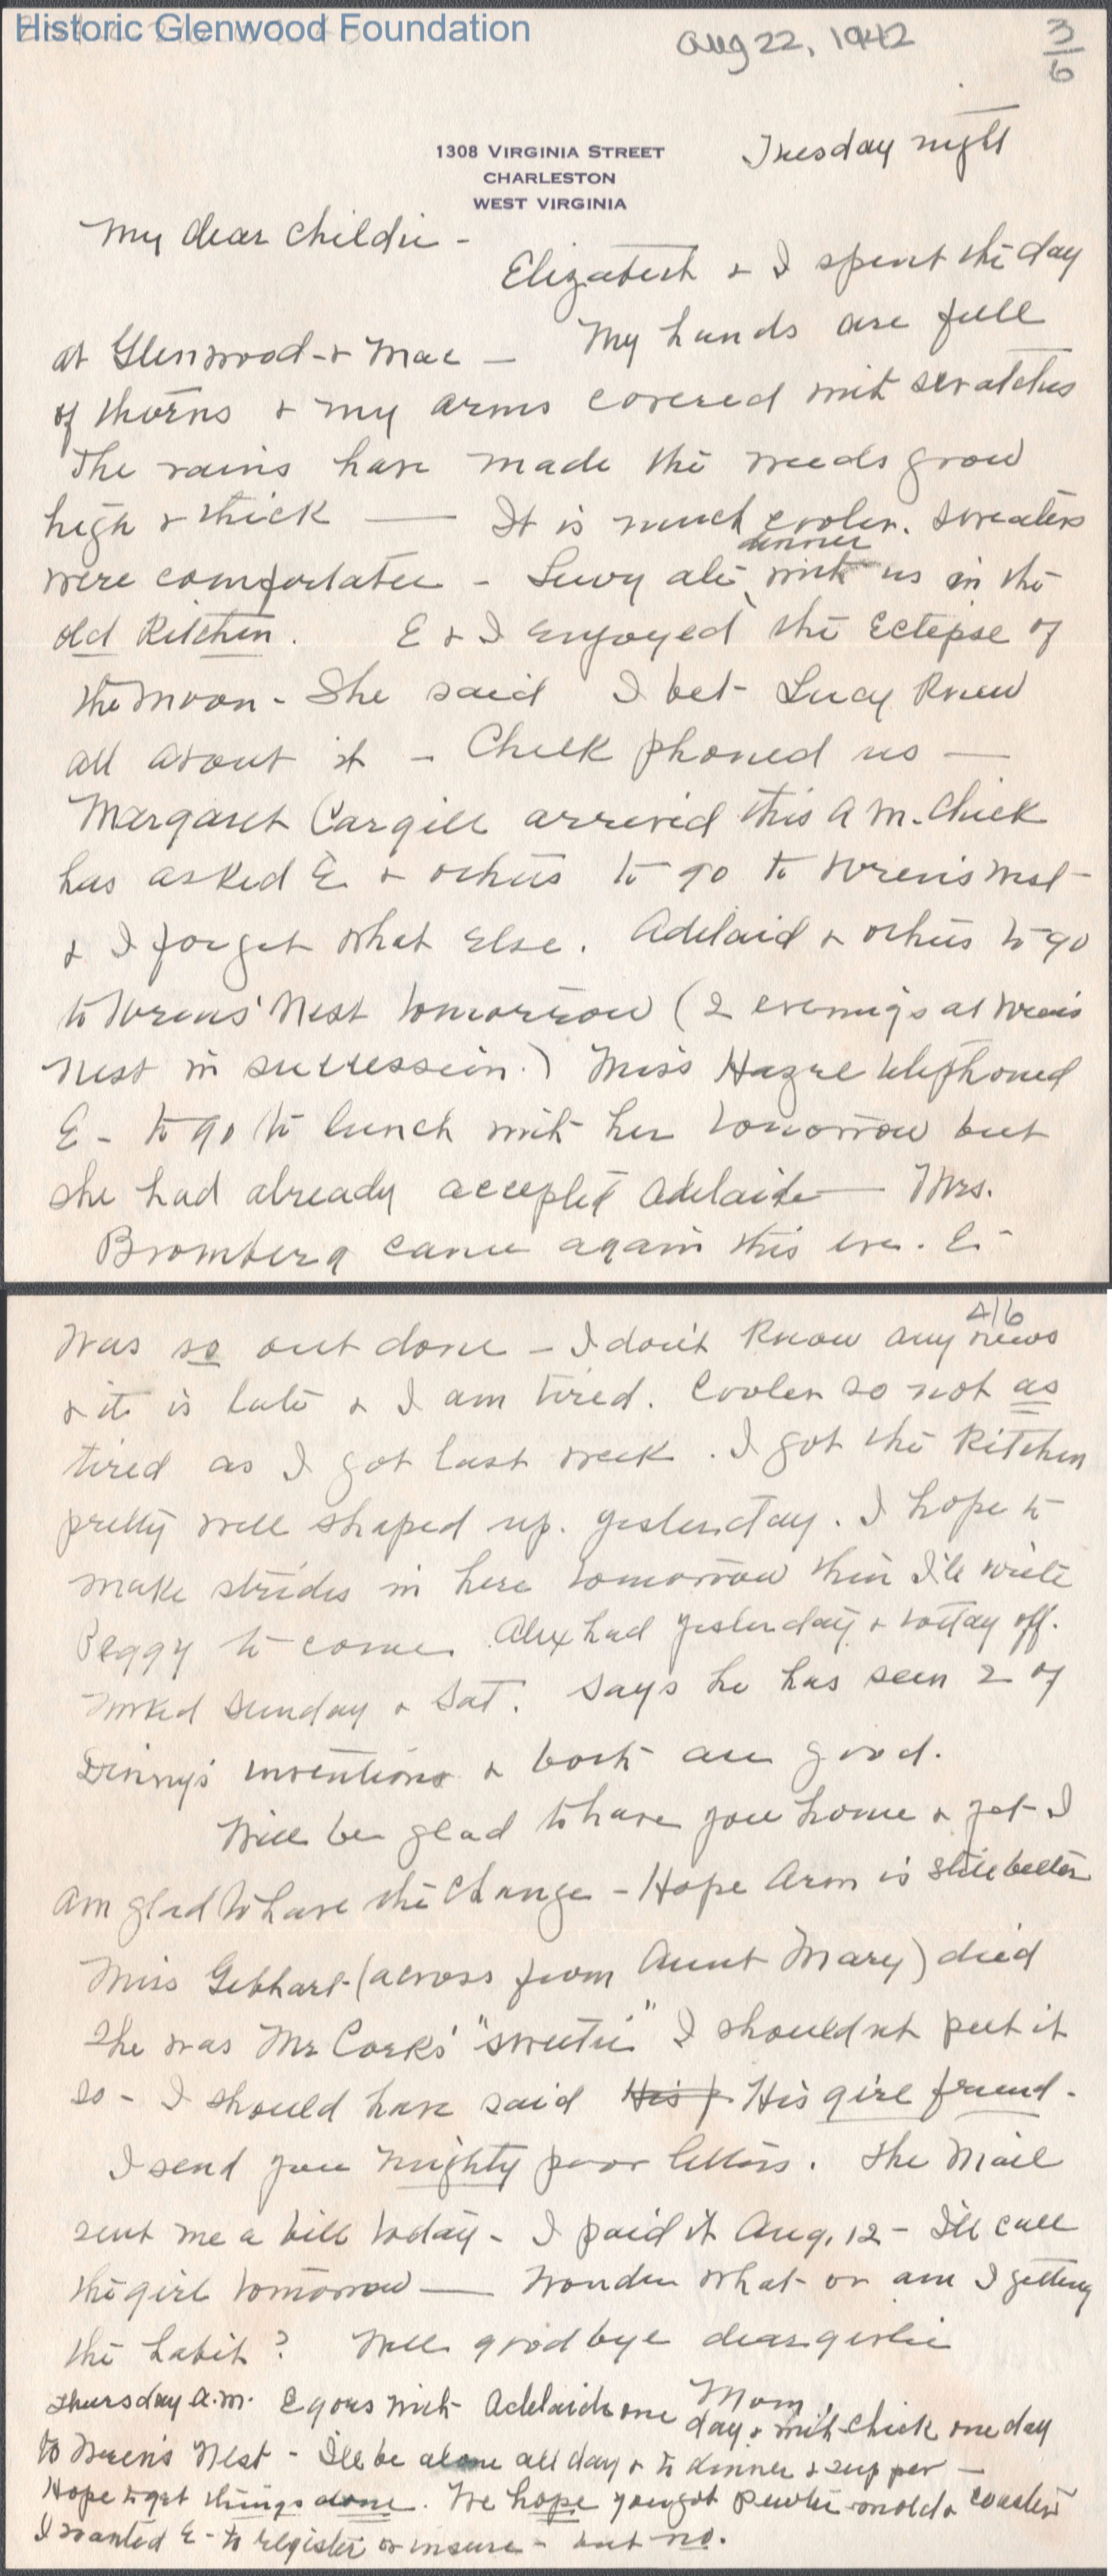 Historic Glenwood Foundation
Aug 22, 1942
3/6
Tuesday night
1308 VIRGINIA STREET
CHARLESTON
WEST VIRGINIA
My dear childie -
Elizabeth & I spent the day
at Glenwood - & Mac - My hands are full
of thorns & my arms covered with scratches
The rains have made the weeds grow
high & thick — It is much cooler. Sweaters
were comfortable - Lewy ate dinner with us in the
old Kitchen. E & I enjoyed the Eclipse of
the moon - She said I bet Lucy knew
all about it - Chick phoned us —
Margaret Cargill arrived this A M. Chick
has asked E & others to go to Wren's Nest -
& I forget what else. Adelaid & others to go
to Wrens' Nest tomorrow (2 evenings at Wren's
Nest in succession.) Miss Hazel telephoned
E - to go to lunch with her tomorrow but
she had already accepted Adelaide — Mrs.
Bromberg came again this eve. E -
4/6
was so out done - I don't know any news
& it is late & I am tired. Cooler so not as
tired as I got last week. I got the kitchen
pretty well shaped up. yesterday. I hope to
make strides in here tomorrow then I'll write
Peggy to come. Alex had yesterday & today off.
Worked Sunday & Sat. Says he has seen 2 of
Dinny's inventions & both are good.
Will be glad to have you home & yet I
am glad to have the change - Hope Arm is still better
Miss Gebhart - (across from Aunt Mary) died
She was Mr Cork's "sweetie" I shouldnt put it
so - I should have said His f His girl friend -
I send you mighty poor letters. The Mail
sent me a bill today - I paid it Aug. 12 - I'll call
the girl tomorrow — Wonder what - or am I getting
the habit? Well goodbye dear girlie
Mom.
Thursday A.M. E goes with Adelaide one day & with Chick one day
to Wren's Nest - I'll be alone all day & to dinner & supper —
Hope to get things done. We hope you got pewter mold & coasters
I wanted E - to register or insure - but no.